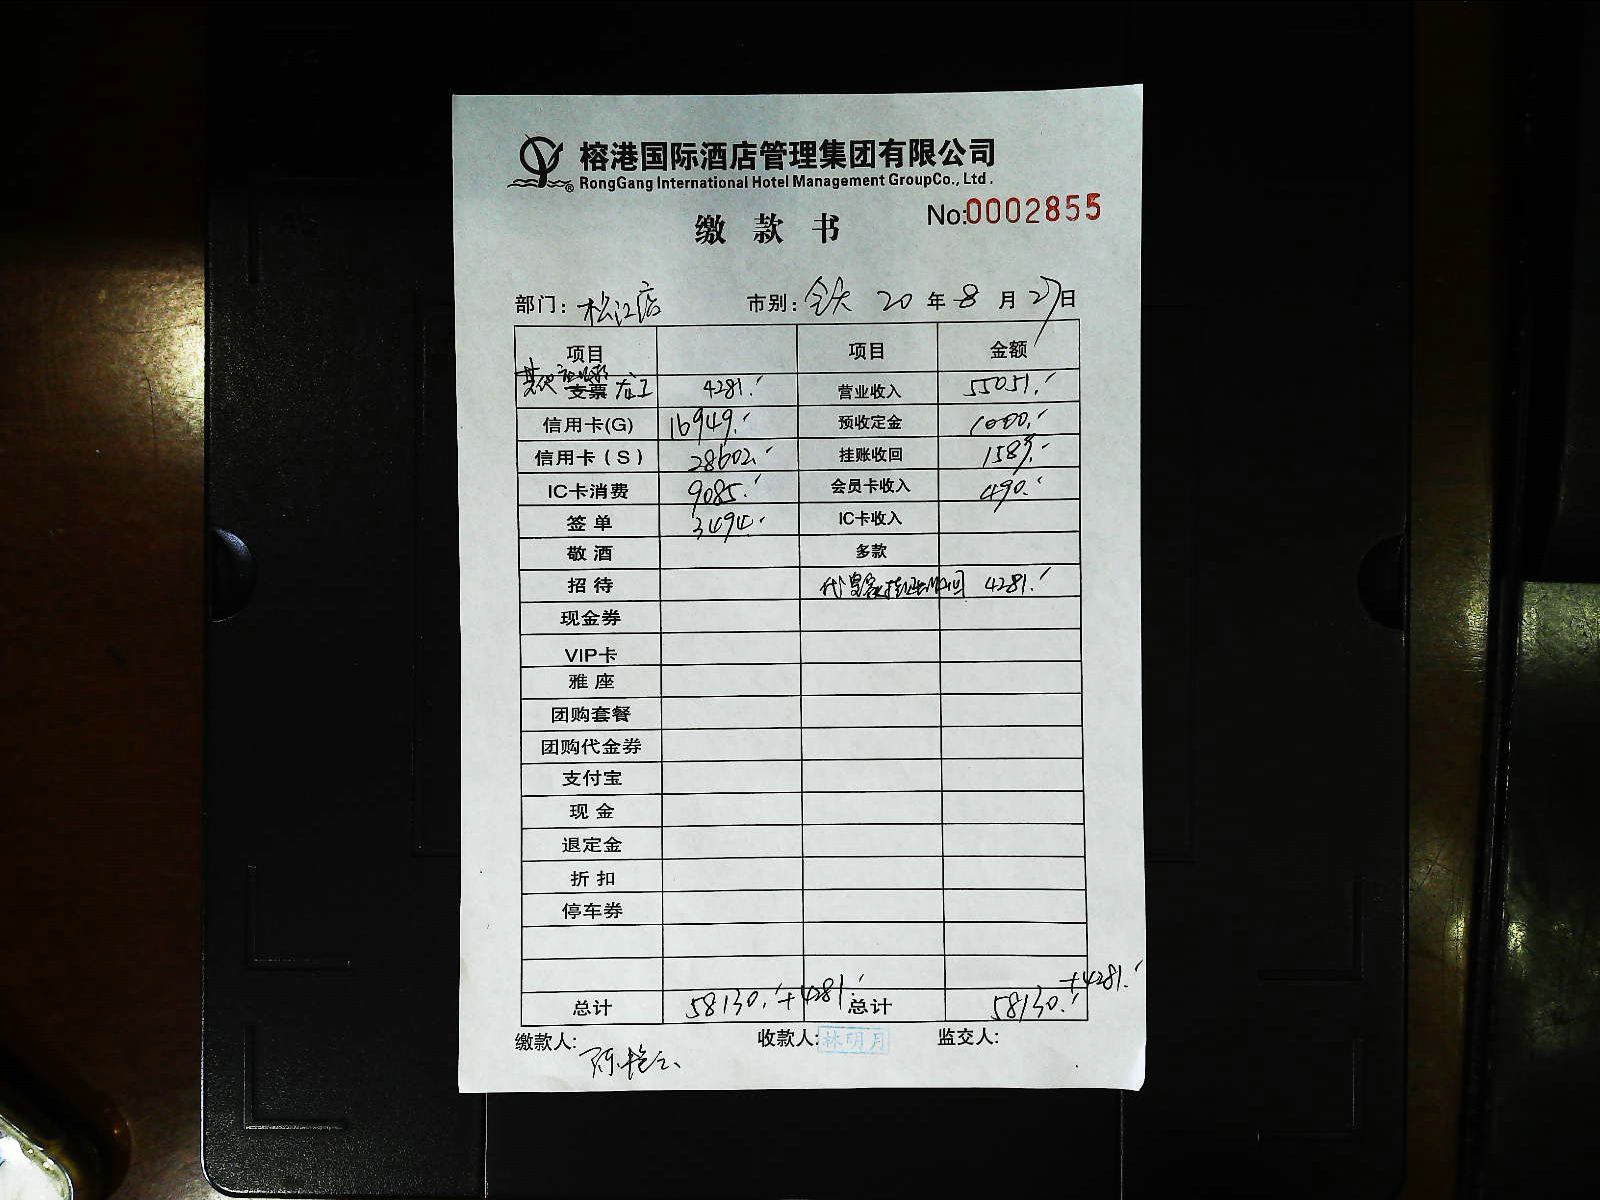 榕港国际酒店管理集团有限公司
RongGang International Hotel Management GroupCo., Ltd.
No:0002855
缴款书
部门: 松江店 市别: 全天 20 年 8 月 27 日
项目 项目 金额
支票 4281.- 营业收入 55051.-
信用卡(G) 16949.- 预收定金 1000.-
信用卡(S) 28602.- 挂账收回 1589.-
IC卡消费 9085.- 会员卡收入 490.-
签单 3494.- IC卡收入
敬酒 多款
招待 4281.-
现金券
VIP卡
雅座
团购套餐
团购代金券
支付宝
现金
退定金
折扣
停车券
总计 58130.-+4281.- 总计 58130.-+4281.-
缴款人: 收款人: 林明月 监交人: